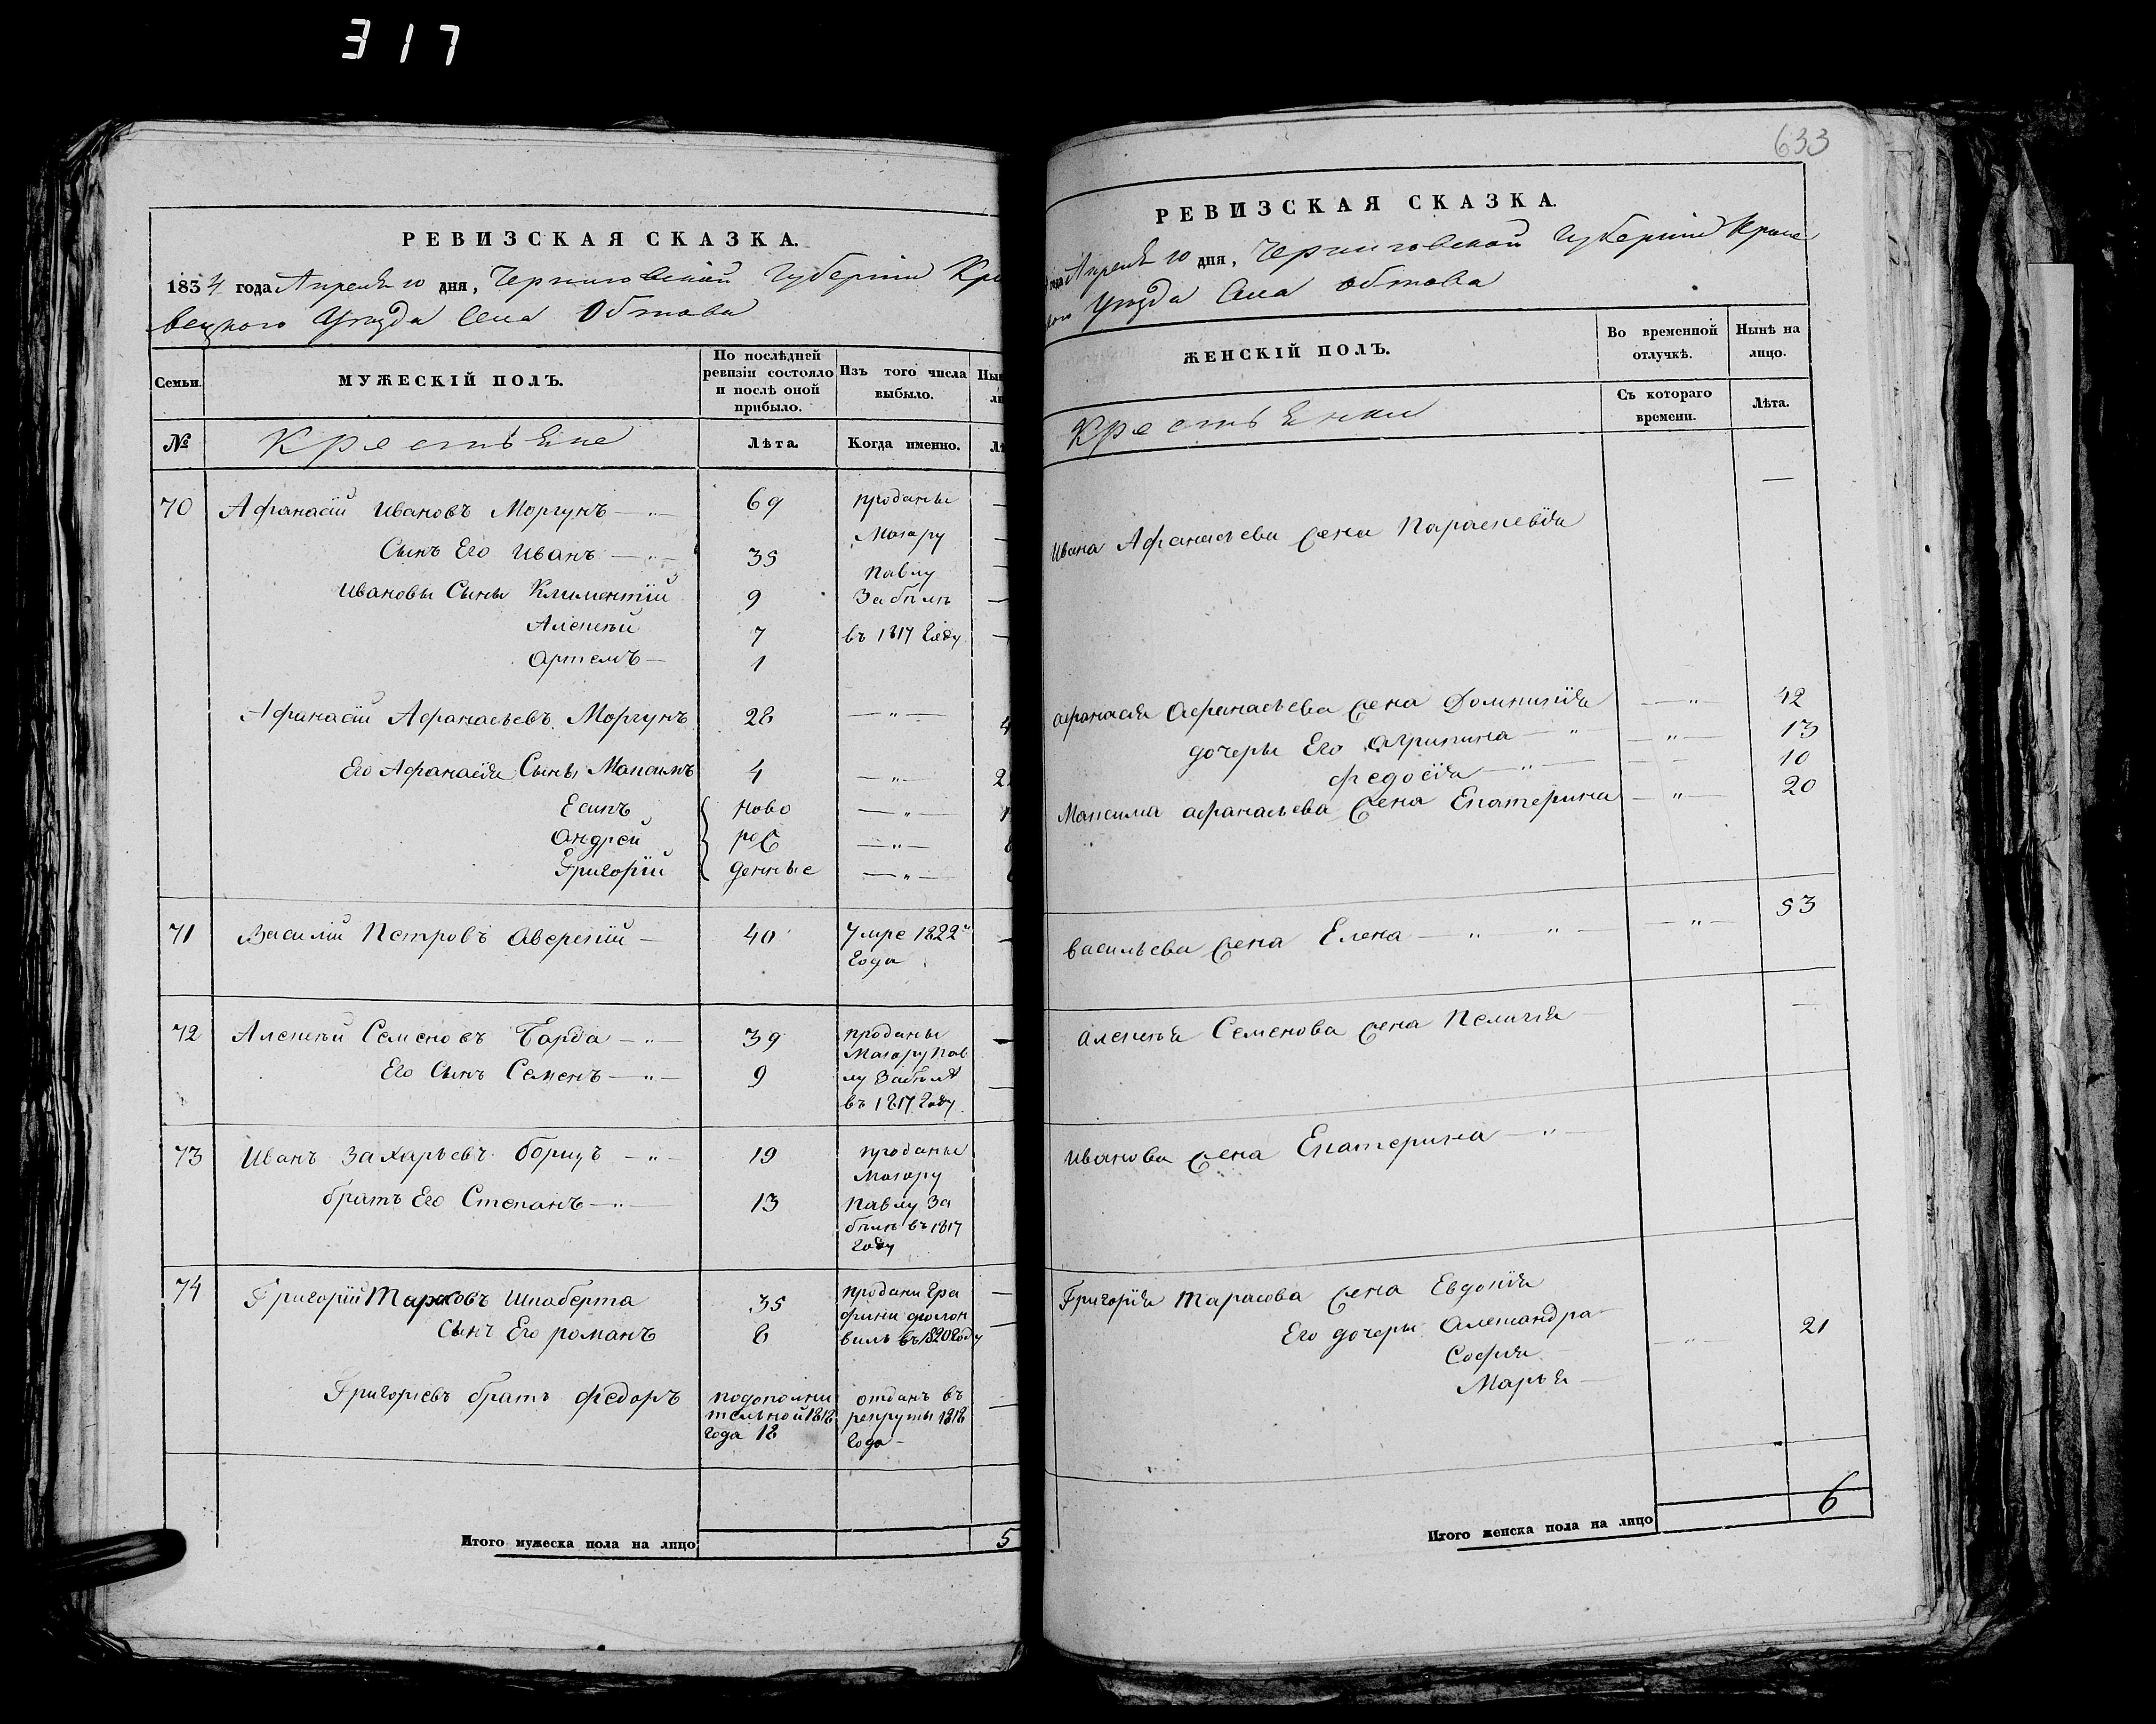 317
РЕВИЗСКАЯ СКАЗКА.
1834 года Апреля 10 дня, Черниговской Губернии Кро
вецкого Уезда Села Обтова
Семьи.
МУЖЕСКІЙ ПОЛЪ.
По послѣдней ревизіи состояло и послѣ оной прибыло.
Изъ того числа выбыло.
№
Крестьяне
Лѣта.
Когда именно.
70 Афанасій Ивановъ Моргунъ — 69 проданы
Маіору
Сынъ Его Иванъ — 35
Павлу
Ивановы Сыны Климентій 9 Забѣлѣ
Алексѣй 7 въ 1817 Году
Артемъ — 1
Афанасій Афанасьевъ Моргунъ 28 — " —
Его Афанасія Сыны Максимъ 4 — " —
Есипъ ново — " —
Андрей рож — " —
Григорій денные — " —
71 Василій Петровъ Аверкій — 40 Умре 1822
года
72 Алексѣй Семеновъ Барда — " — 39 проданы
Маіору Пав
Его Сынъ Семенъ — " — 9 лу Забѣлѣ
въ 1817 Году
73 Иванъ Захарьевъ Борщъ — " — 19 проданы
Маіору
братъ Его Степанъ — " — 13 Павлу За
бѣлѣ въ 1817
Году
74 Григорій Тарасовъ Шкаберта 35 проданы Гра
фини
Сынъ Его романъ 6 въ 1820 Году
Григорьевъ братъ Федоръ подополни отданъ въ
тельной 1818 рекруты 1818
года 18 Года —
Итого мужеска пола на лицо 5
633
РЕВИЗСКАЯ СКАЗКА.
года Апреля 10 дня, Черниговской Губерніи Кроле
Уезда Села Обтова
ЖЕНСКІЙ ПОЛЪ.
Во временной отлучкѣ.
Нынѣ на лицо.
Крестьянки
Съ котораго времени.
Лѣта.
Ивана Афанасьева жена Параскевія
Афанасія Афанасьева жена Домникія — " — 42
дочеры Его Агрипина — " — " — 13
Федосія — " — 10
Максима Афанасьева жена Екатерина — " — 20
Васильева жена Елена — " — " — " — 53
Алексѣя Семенова жена Пелагія
Иванова жена Екатерина — " —
Григорія Тарасова жена Евдокія
Его дочеры Александра " 21
Софія —
Марья —
Итого женска пола на лицо 6